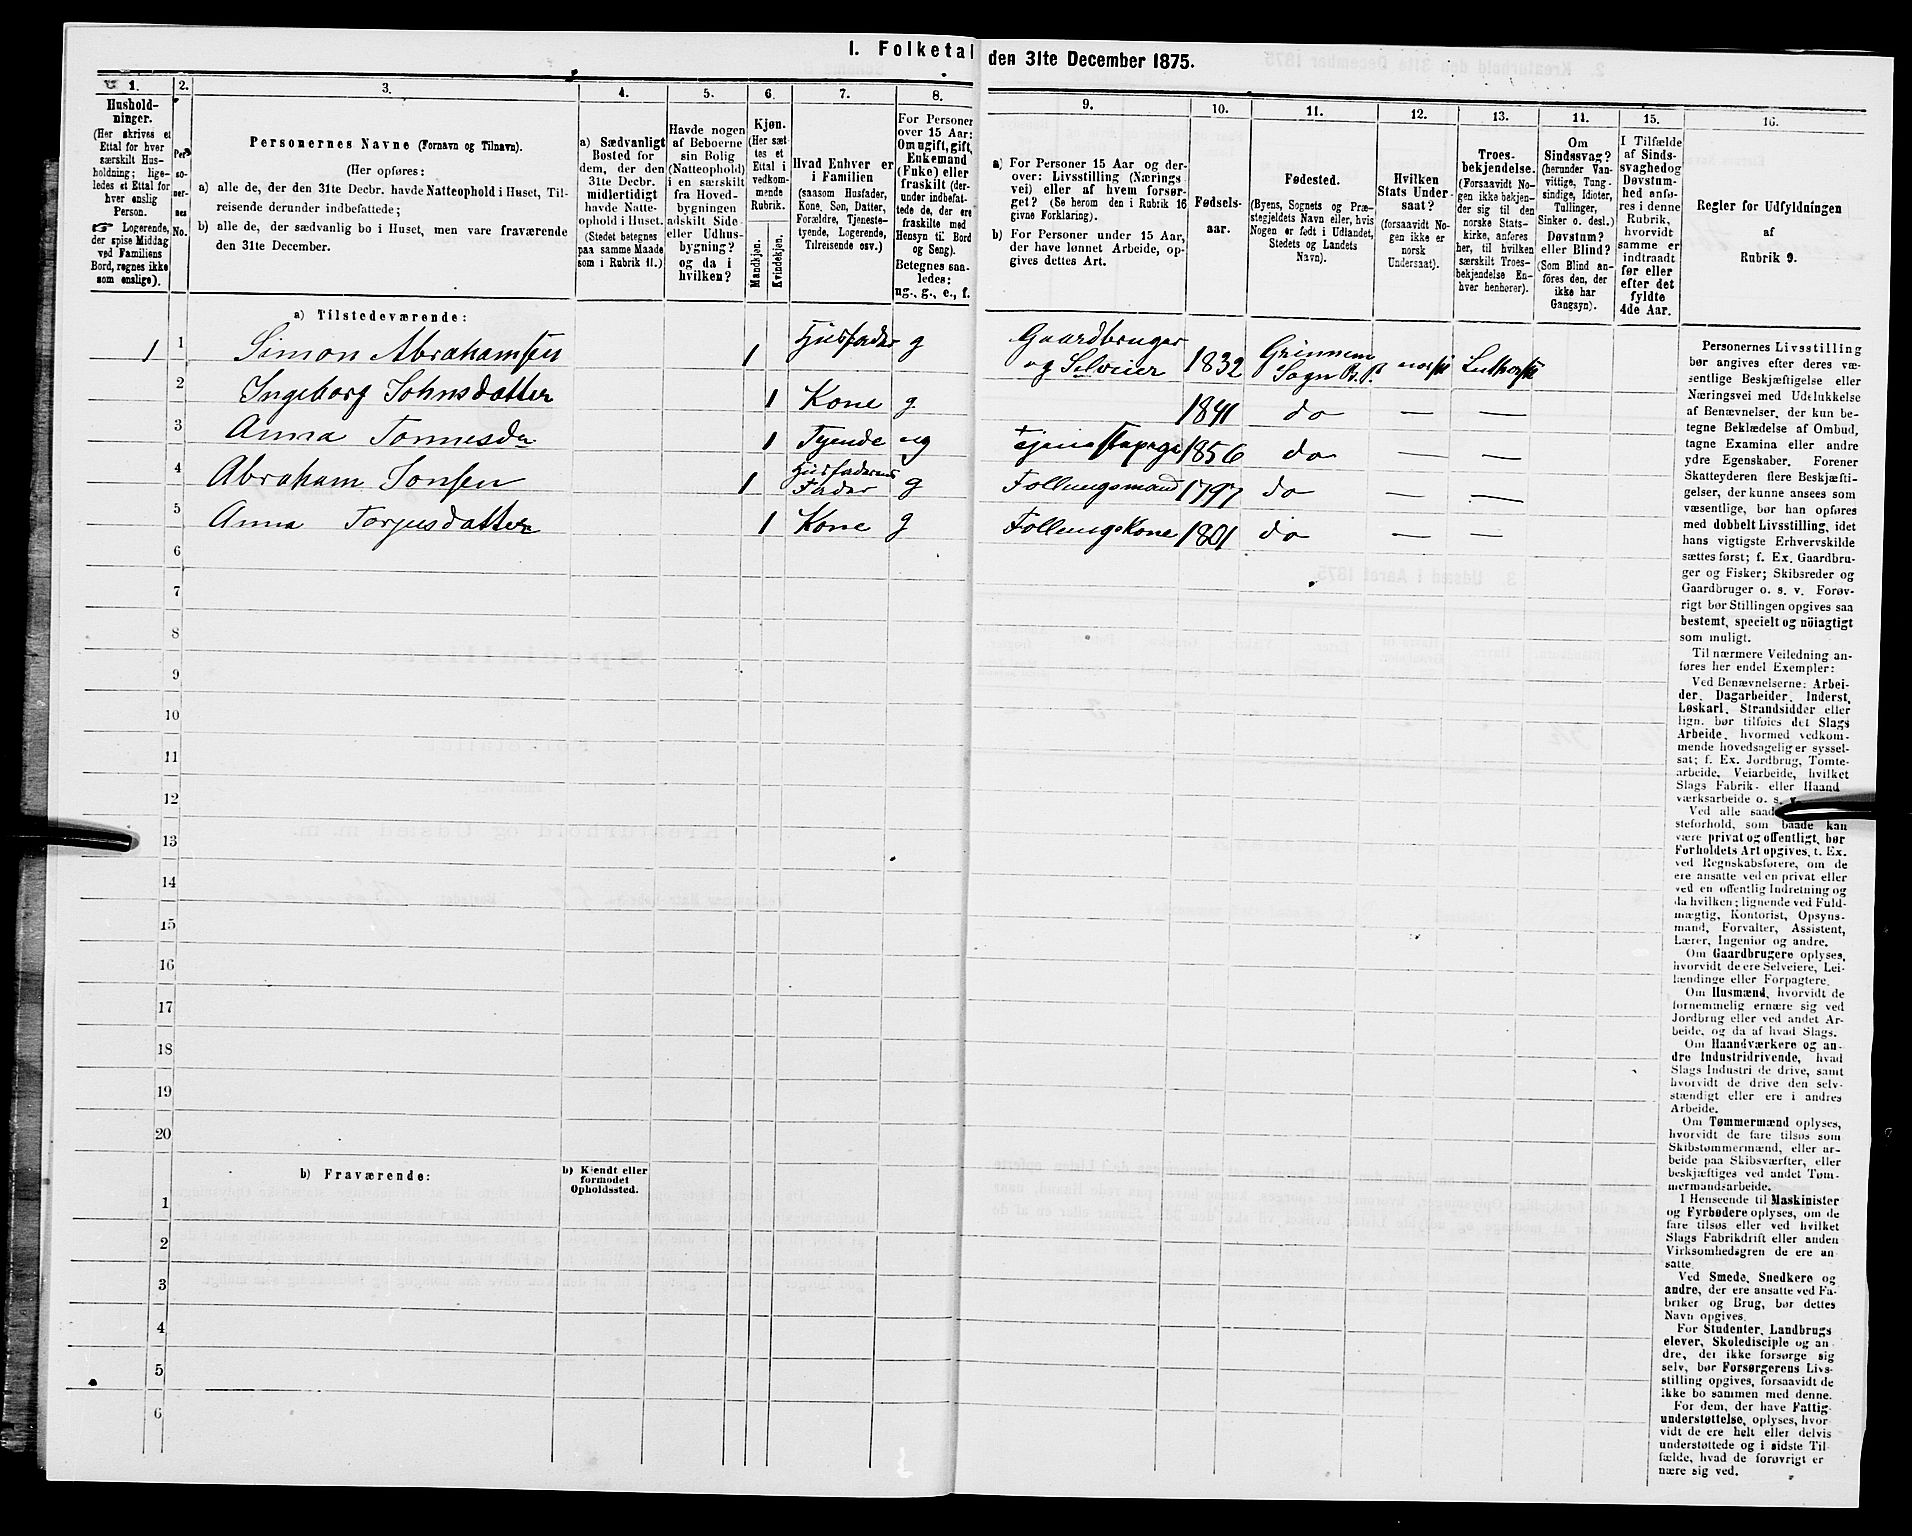 I. Folketal den 31te December 1875.
1. 2. 3. 4. 5. 6. 7. 8. 9. 10. 11. 12. 13. 14. 15. 16.
Hushold-
ninger.
(Her skrives et
Ettal for hver
særskilt Hus-
holdning; lige-
ledes et Ettal for
hver enslig
Person.
☞ Logerende,
der spise Middag
ved Familiens
Bord, regnes ikke
som enslige).
Per-
so-
ner-
nes
No.
Personernes Navne (Fornavn og Tilnavn).
(Her opføres:
a) alle de, der den 31te Decbr. havde Natteophold i Huset, Til-
reisende derunder indbefattede;
b) alle de, der sædvanlig bo i Huset, men vare fraværende
den 31te December.
a) Sædvanligt
Bosted for
dem, der den
31te Decbr.
midlertidigt
havde Natte-
ophold i Huset.
(Stedet betegnes
paa samme Maade
som i Rubrik 11.)
Havde nogen
af Beboerne
sin Bolig
(Natteophold)
i en særskilt
fra Hoved-
bygningen
adskilt Side-
eller Udhus-
bygning?
og da i
hvilken?
Kjøn.
(Her sæt-
tes et
Ettal i
vedkom-
mende
Rubrik.
Mandkjøn.
Kvindekjøn.
Hvad Enhver er
i Familien
(saasom Husfader,
Kone, Søn, Datter,
Forældre, Tjeneste-
tyende, Logerende,
Tilreisende osv.)
For Personer
over 15 Aar:
Om ugift, gift,
Enkemand
(Enke) eller
fraskilt (der-
under indbefat-
tede de, der ere
fraskilte med
Hensyn til Bord
og Seng).
Betegnes saa-
ledes:
ug., g., e., f.
a) For Personer 15 Aar og der-
over: Livsstilling (Nærings-
vei) eller af hvem forsør-
get? (Se herom den i Rubrik 16
givne Forklaring).
b) For Personer under 15 Aar,
der have lønnet Arbeide, op-
gives dettes Art.
Fødsels-
aar.
Fødested.
(Byens, Sognets og Præ-
stegjeldets Navn eller, hvis
Nogen er født i Udlandet,
Stedets og Landets
Navn).
Hvilken
Stats Under-
saat?
(forsaavidt No-
gen ikke er
norsk
Undersaat).
Troes-
bekjendelse.
(Forsaavidt No-
gen ikke bekjen-
der sig til den
norske Stats-
kirke, anføres
her, til hvilken
særskilt Troes-
bekjendelse En-
hver henhører).
Om
Sindssvag?
(herunder Van-
vittige, Tung-
sindige, Idioter,
Tullinger,
Sinker o. desl.)
Døvstum?
eller Blind?
(Som Blind an-
føres den, der
ikke har
Gangsyn).
I Tilfælde
af Sinds-
svaghed og
Døvstum-
hed anfø-
res i denne
Rubrik,
hvorvidt
samme er
indtraadt
før eller
efter det
fyldte
4de Aar.
Regler for Udfyldningen
af
Rubrik 9.
a) Tilstedeværende:
1 1 Simon Abrahamsen 1 Husfader g Gaardbruger og Selveier 1832 Sogn norsk Luthersk
2 Ingeborg Johnsdatter 1 Kone g. 1841 do — —
3 Anna Tønnesdr 1 Tyende ug 1856 do — —
4 Abraham Jonsen 1 Husfaderens Fader g Føllungsmand 1797 do — —
5 Anna Torjusdatter 1 Kone g Føllungskone 1801 do — —
6
7
8
9
10
11
12
13
14
15
16
17
18
19
20
b) Fraværende:
b) Kjendt eller
formodet
Opholdssted.
1
2
3
4
5
6
Personernes Livsstilling
bør angives efter deres væ-
sentlige Beskjæftigelse eller
Næringsvei med Udelukkelse
af Benævnelser, der kun be-
tegne Beklædelse af Ombud,
tagne Examina eller andre
ydre Egenskaber. Forener
Skatteyderen flere Beskjæfti-
gelser, der kunne ansees som
væsentlige, bør han opføres
med dobbelt Livsstilling, idet
hans vigtigste Erhvervskilde
sættes først; f. Ex. Gaardbru-
ger og Fisker; Skibsreder og
Gaardbruger o. s. v. Forøv-
rigt bør Stillingen opgives saa
bestemt, specielt og nöiagtigt
som muligt.
Til nærmere Veiledning an-
føres her endel Exempler:
Ved Benævnelserne: Arbei-
der, Dagarbeider, Inderst,
Løskarl, Strandsidder eller
lign. bør tilføies det Slags
Arbeide, hvormed vedkom-
mende hovedsageliger syssel-
sat; f. Ex. Jordbrug, Tomte-
arbeide, Veiarbeide, hvilket
Slags Fabrik- eller Haand
værksarbeide o. s. v.
Ved alle saad
steforhold, som baade kan
være privat og offentligt, bør
Forholdets Art opgives, t. Ex.
ved Regnskabsførere, om de
ere ansatte ved en privat eller
ved en offentlig Indretning og
da hvilken; lignende ved Fuld-
mægtig, Kontorist, Opsyns-
mand, Forvalter, Assistent,
Lærer, Ingeniør og andre.
Om Gaardbrugere oplyses,
hvorvidt de ere Selveiere, Lei-
lændinge eller Forpagtere.
Om Husmænd, hvorvidt de
fornemmelig ernære sig ved
Jordbrug eller ved andet Ar-
beide, og da af hvad Slags.
Om Haandværkere og an-
dre Industridrivende, hvad
Slags Industri de drive, samt
hvorvidt de drive den selv-
stændigt eller ere i andres
Arbeide.
Om Tømmermænd oplyses,
hvorvidt de fare tilsøs som
Skibstømmermænd, eller ar-
beide paa Skibsværfter, eller
beskjæftiges ved andet Tøm-
mermandsarbeide.
I Henseende til Maskinister
og Fyrbødere oplyses, om de
fare tilsøs eller ved hvilket
Slags Fabrikdrift eller anden
Virksomhedsgren de ere an
satte.
Ved Smede, Snedkere og
andre, der ere ansatte ved Fa-
briker og Brug, bør dettes
Navn opgives.
For Studenter, Landbrugs
elever, Skoledisciple og an-
dre, der ikke forsørge sig
selv, bør Forsørgerens Livs-
stilling opgives, forsaavidt de
ikke bo sammen med denne.
For dem, der have Fattig-
understøttelse, oplyses, hvor-
vidt de ere helt eller delvis
understøttede og i sidste Til-
fælde, hvad de forøvrigt er
nære sig ved.